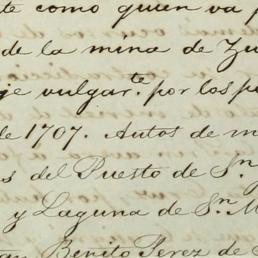 te como quien va p
de la mina de Zu
je vulgar.te por los pu
de 1707. Autos de m
s del Puesto de Sn.
y Laguna de Sn. M
Benito Perez de S